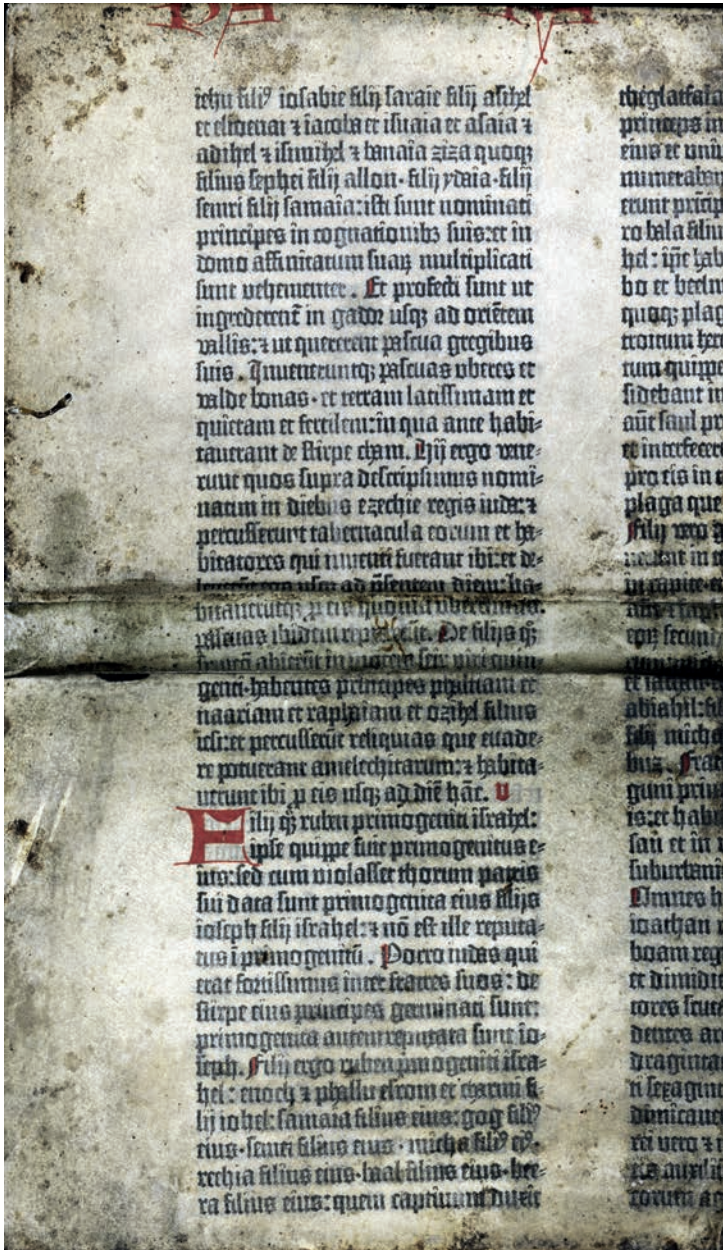 iehu filiꝰ iosabie filij saraie filij asihel
et elioenai ⁊ iacoba et isuaia et asaia ⁊
adihel ⁊ isimihel ⁊ banaia ziza quoqꝫ
filius sephei filij allon·filij ydaia·filij
semri filij samaia:isti sunt nominati
principes in cognationibꝫ suis:et in
domo affinitatum suaꝝ multiplicati
sunt vehementer. Et profecti sunt ut
ingrederent᷑ in gador usqꝫ ad orientem
vallis:⁊ ut quererent pascua gregibus
suis. Inveneruntqꝫ pascuas vberes et
valde bonas·et terram latissimam et
quietam et fertilem:in qua ante habi-
taverant de stirpe cham. Hij ergo vene-
runt quos supra descripsimus nomi-
natim in diebus ezechie regis iuda:⁊
percusserunt tabernacula eorum et ha-
bitatores qui inventi fuerant ibi:et de-
usqꝫ ad p̄sentem diem:ha-
bitaveruntqꝫ ꝓ eis
pascuas ibidem De filijs qꝫ
abierūt in montem seir viri quin-
genti·habentes principes phaltiam et
naariam et raphaiam et ozihel filius
iesi:et percusserūt reliquias que evade-
re potuerant amelechitarum:⁊ habita-
verunt ibi ꝓ eis usqꝫ ad diē hāc. V
Filij qꝫ ruben primogeniti israhel:
ipse quippe fuit primogenitus e-
ius:sed cum violasset thorum patris
sui data sunt primogenita eius filijs
ioseph filij israhel:⁊ nō est ille reputa-
tus ī primogenitū. Porro iudas qui
erat fortissimus inter fratres suos: de
stirpe eius principes germinati sunt:
primogenita autem reputata sunt io-
seph. Filij ergo ruben p̄mogeniti isra-
hel: enoch ⁊ phallu esrom et charmi fi-
lij iohel: samaia filius eius: gog filiꝰ
eius·semei filius eius·micha filiꝰ eiꝰ·
rechia filius eius·baal filius eius·bee-
ra filius eius: quem captivum duxit
theglatfala
princeps in
eius et univ
numeraban
erunt prīcip
ro bala filiu
hel: ip̄e hab
bo et beelm
quoqꝫ plag
troitum here
rum quippe
sidebant in
aūt saul pr
et interfecer
pro eis in
plaga que
Filij vero g
abiahil:fil
filij micha
buz. Frat
guni prin
is:et habi
san et in v
suburbani
Omnes h
ioathan r
boam reg
et dimidi
tores scut
dentes ar
draginta
ti sexagin
dimicaver
rei vero ⁊
auxili
torum a